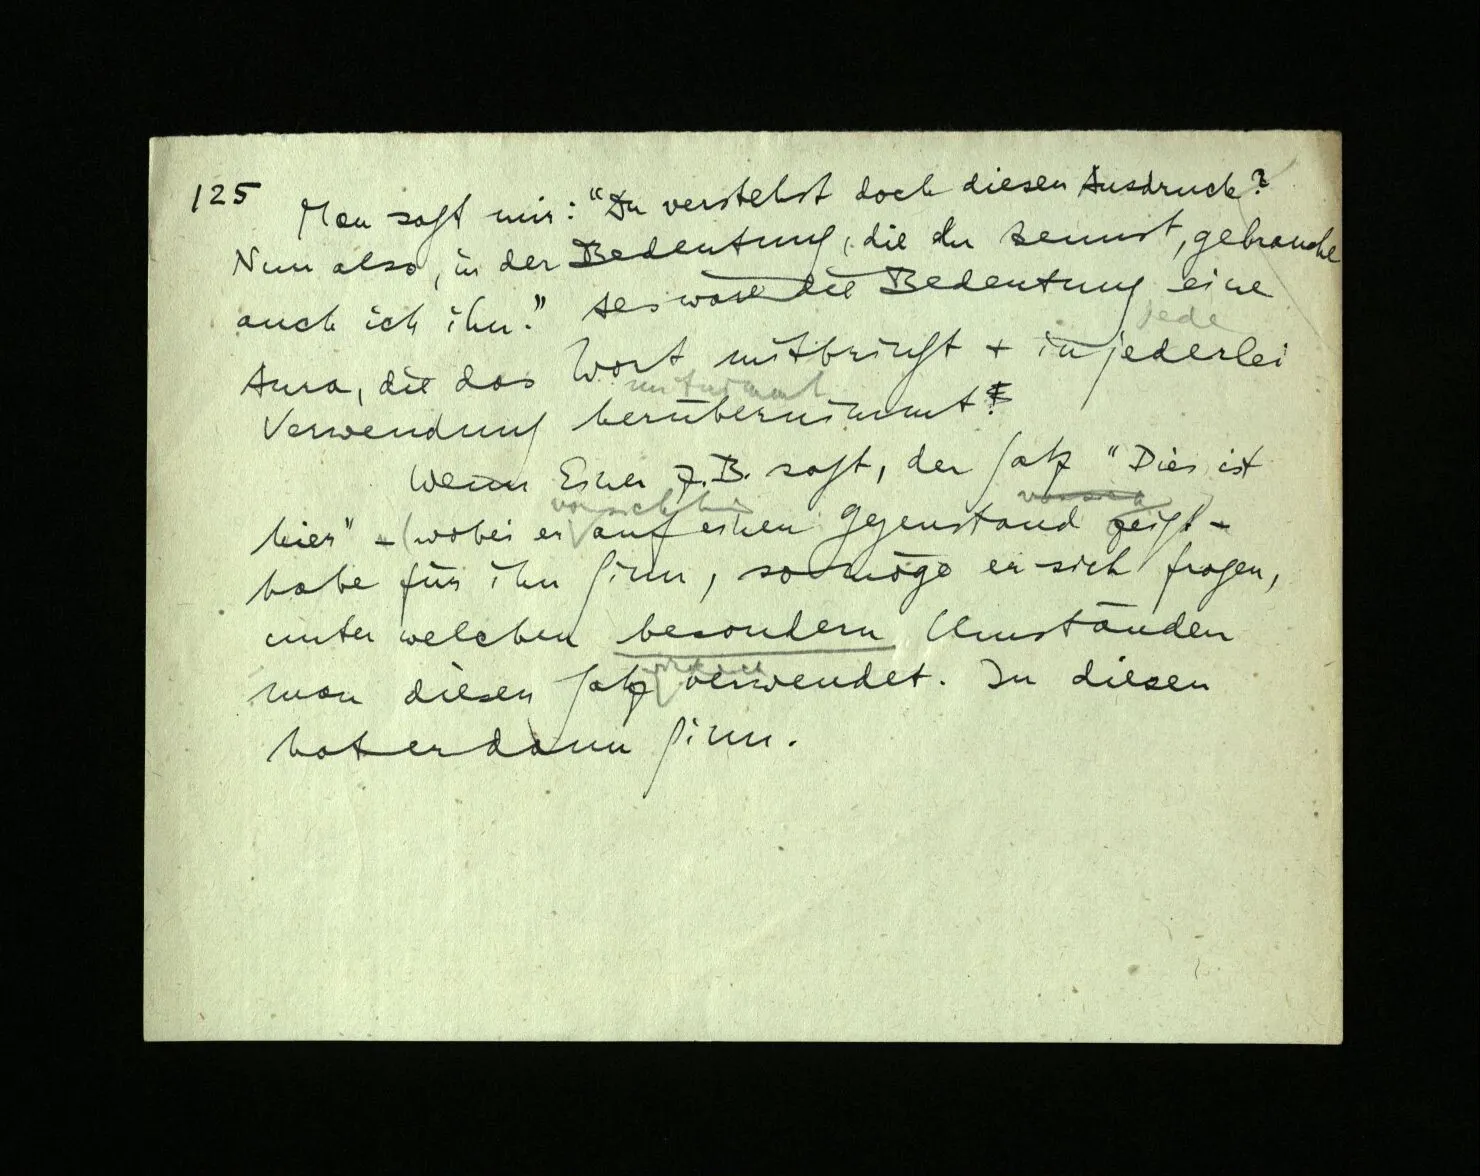 125 Man sagt mir: "Du verstehst doch diesen Ausdruck?
Nun also, in der Bedeutung, die du kennst, gebrauche
auch ich ihn." Als wäre die Bedeutung eine
jede
Aura, die das Wort mitbringt + in jederlei
mitnimmt
Verwendung herübernimmt!
Wenn Einer z.B. sagt, der Satz "Dies ist
vor sich hin
hier" – (wobei er auf einen Gegenstand zeigt –
habe für ihn Sinn, so möge er sich fragen,
unter welchen besondern Umständen
man diesen Satz verwendet. In diesen
hat er dann Sinn.